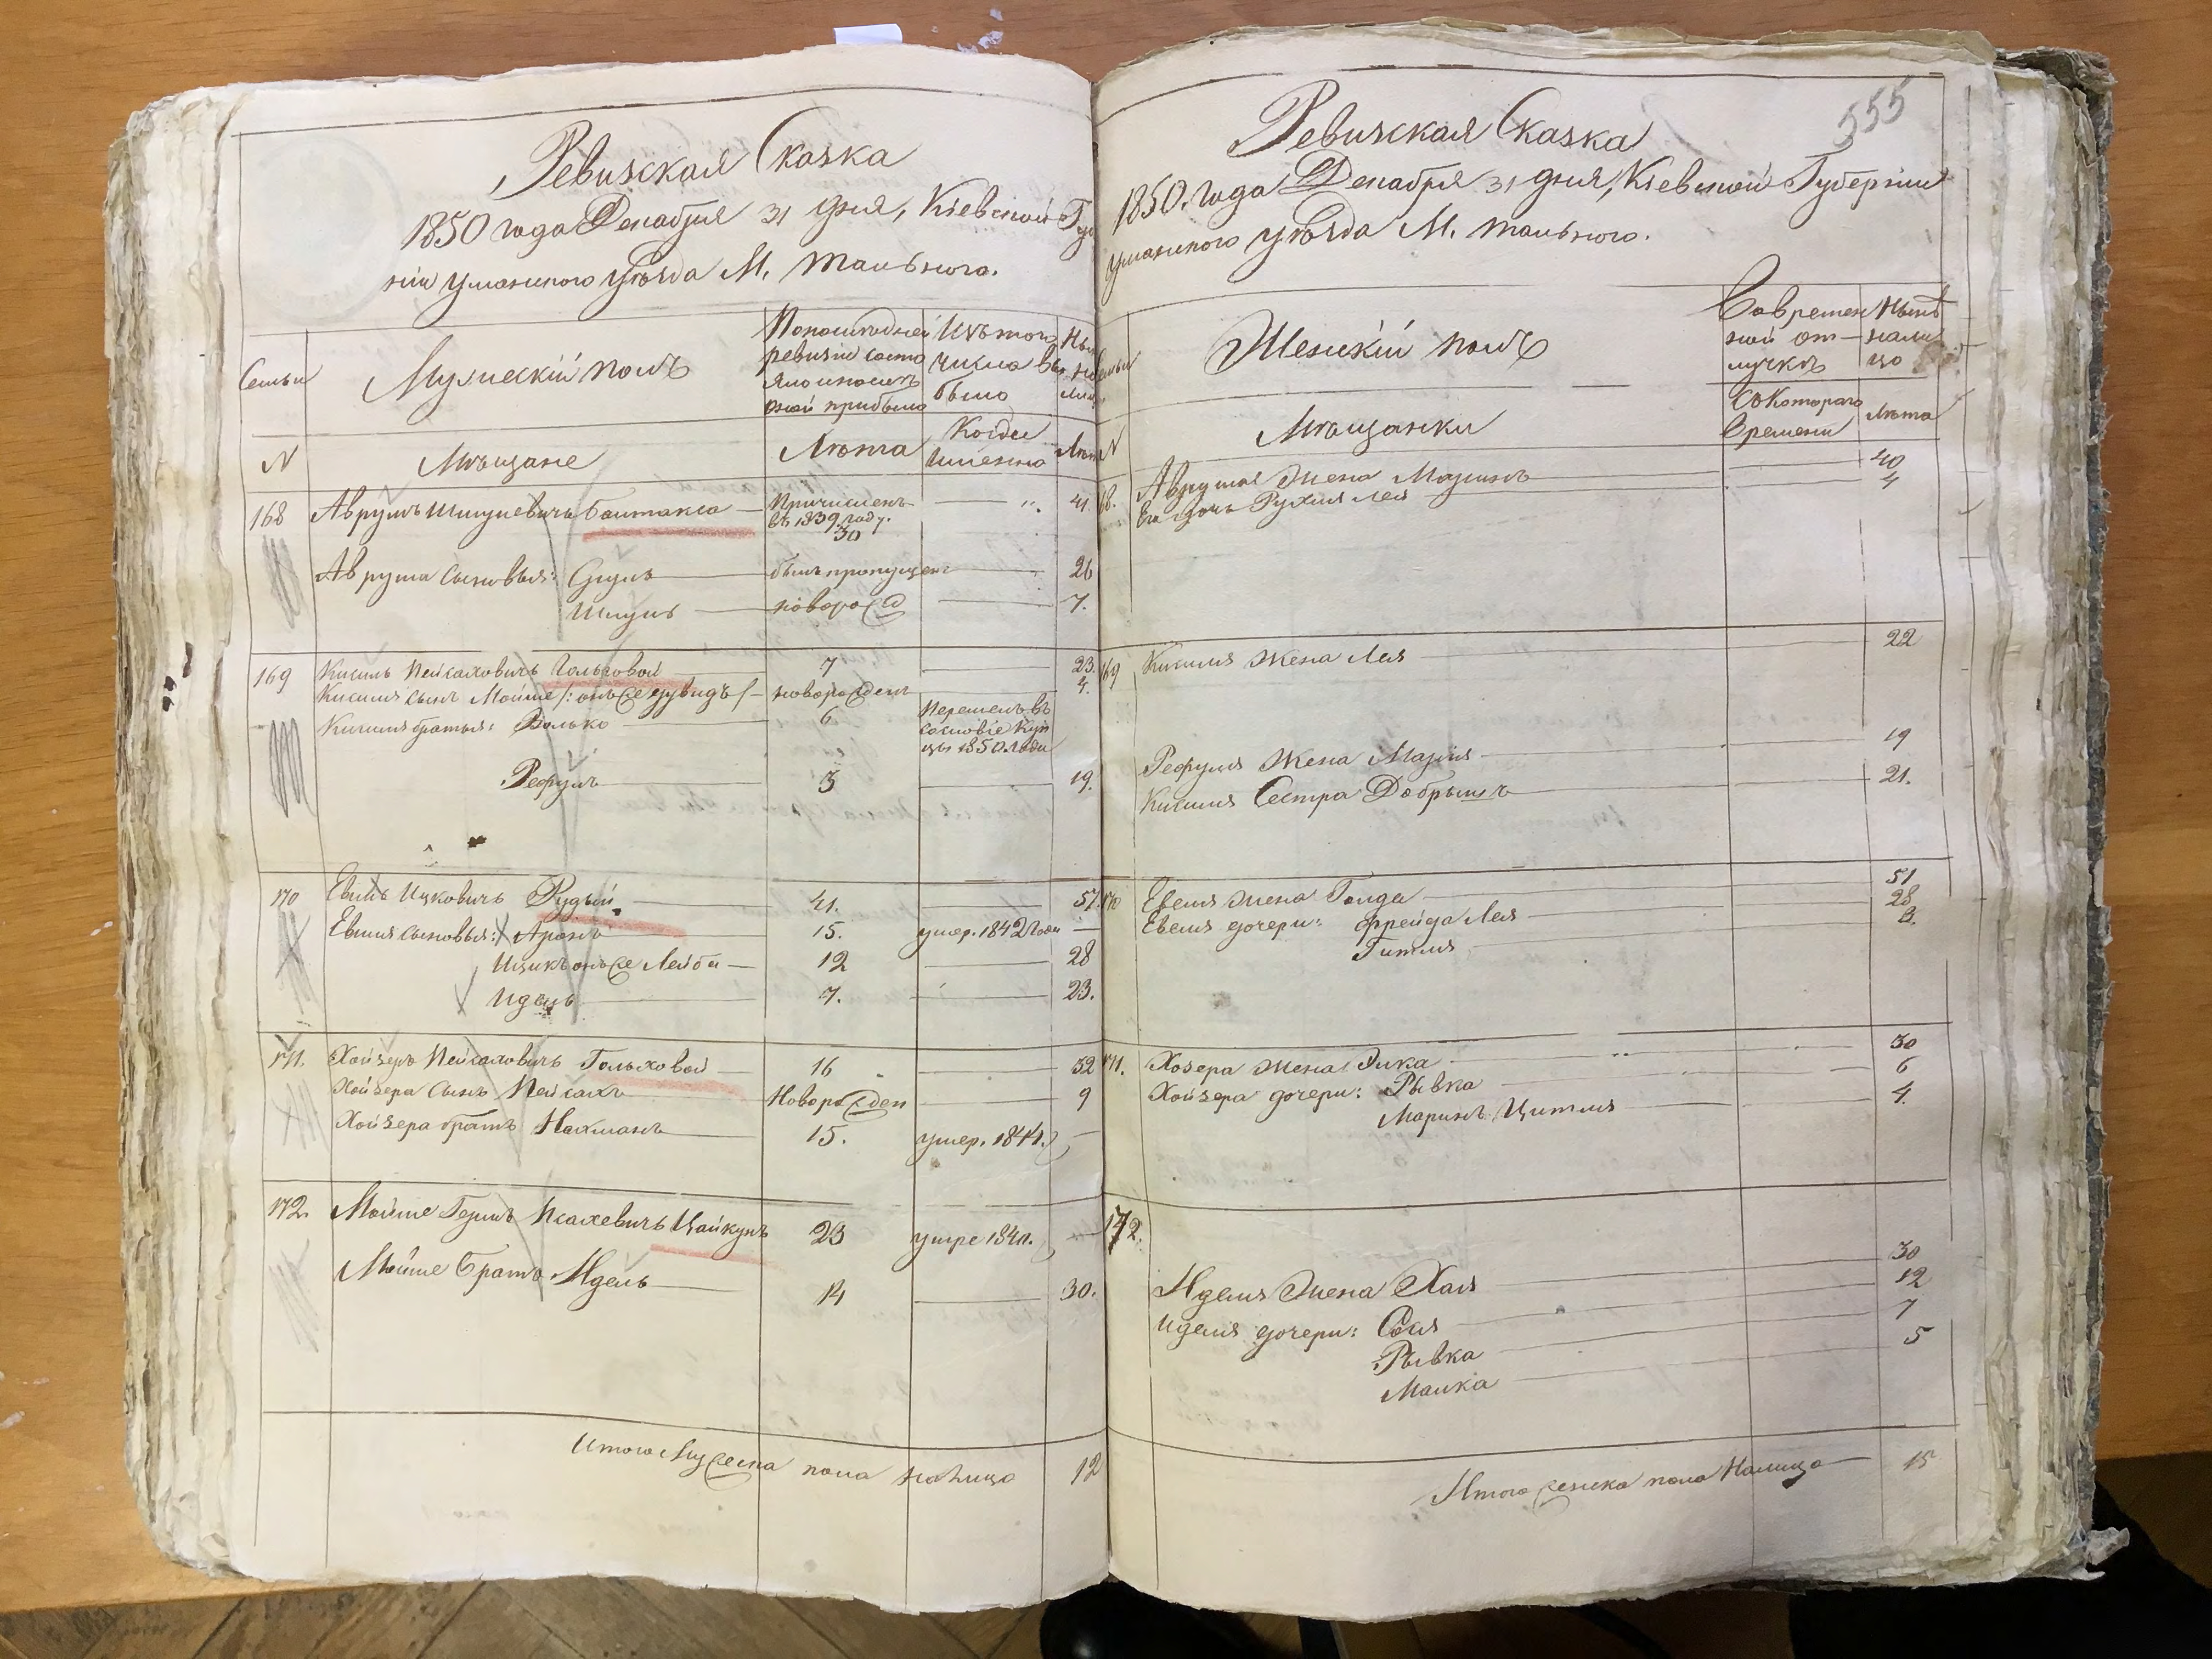 Ревизская Сказка
1850 года Декабря 31 дня, Кіевской Гу
ніи Уманского Уѣзда М. Тального.
Семьи
Мужескій полъ
По последней
ревизіи состо
яло и после
оной прибыло
Изъ того
числа вы
было
Ны
N
Мѣщане
Лѣта
Когда
именно
Лѣт
168 Аврумъ Шмулевичъ Причисленъ 41.
въ 1839 году.
30
Аврума сыновья: Сруль былъ пропущенъ 26
Шмуль новорож 7.
169 Кисиль Пейсаховичъ Гольховой 7 23.
Кисиля сынъ Мойше /: онъ же Дувидъ новорожден 4.
Кисиля братья: Волько 6. Перешелъ въ
сословіе Куп
цы 1850 года
Рефулъ 3 19.
170 Евель Ицковичъ Рудый 41. 57.
Евеля сыновья: Аронъ 15. умер. 1842 года
Ицикъ онъ же Лейба 12 28
Идель 7. 23.
171. Хойзеръ Пейсаховичъ Гольховой 16 32
Хойзера сынъ Пейсахъ Новорожден 9
Хойзера братъ Нахманъ 15. умер. 1844.
172. Мойше Гершъ Псахевичъ Цайкунъ 23 умре 184
Мойше братъ Идель 14 30.
Итого Мужеска пола налицо 12
555
Ревизская Сказка
1850. года Декабря 31 дня, Кіевской Губерніи
Уманского Уѣзда М. Тального.
Женскій полъ
Во времен
ной от-
лучкѣ
Нынѣ
нали
цо
N
Мѣщанки
Съ Котораго
Времени
Лѣта
168. Аврума Жена Маріимъ 40
Его дочь Рухля Лея 4
169 Кисиля Жена Лея 22
Рефула Жена Марія 19
Кисиля Сестра Добрышъ 21.
170 Евеля жена Голда 51
Евеля дочери: Фрейда Лея 28
Гитля 3.
171. Хозера жена Элка 30
Хойзера дочери: Рывка 6
Маріимъ Цитля 4.
172.
Иделя Жена Хая 30
Иделя дочери: Сося 12
Рывка 7
Малка 5
Итого женска пола Налицо 15